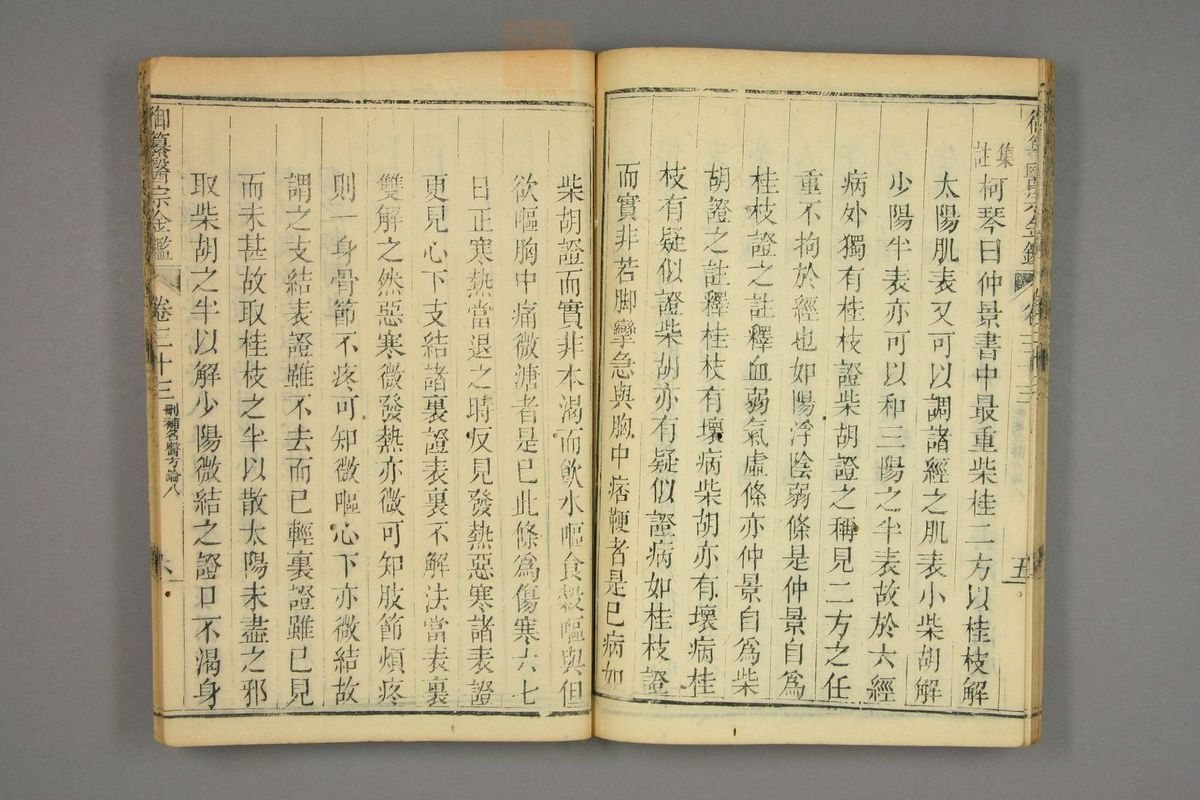 集註柯琴曰仲景書中最重柴桂二方以桂枝解
太陽肌表又可以調諸經之肌表小柴胡解
少陽半表亦可以和三陽之半表故於六經
病外獨有桂枝證柴胡證之稱見二方之任
重不拘於經也如陽浮陰弱條是仲景自為
桂枝證之註釋血弱氣虛條亦仲景自為柴
胡證之註釋桂枝有壞病柴胡亦有壞病桂
枝有疑似證柴胡亦有疑似證病如桂枝證
而實非若脚攣急與胸中痞鞕者是已病如
五
柴胡證而實非本渴而飲水嘔食穀嘔與但
欲嘔胸中痛微溏者是已此條為傷寒六七
日正寒熱當退之時反見發熱惡寒諸表證
更見心下支結諸裏證表裏不解法當表裏
雙解之然惡寒微發熱亦微可知肢節煩疼
則一身骨節不疼可知微嘔心下亦微結故
謂之支結表證雖不去而已輕裏證雖已見
而未甚故取桂枝之半以散太陽未盡之邪
取柴胡之半以解少陽微結之證口不渴身
御纂醫宗金鑑 卷三十三 刪補名醫方論八